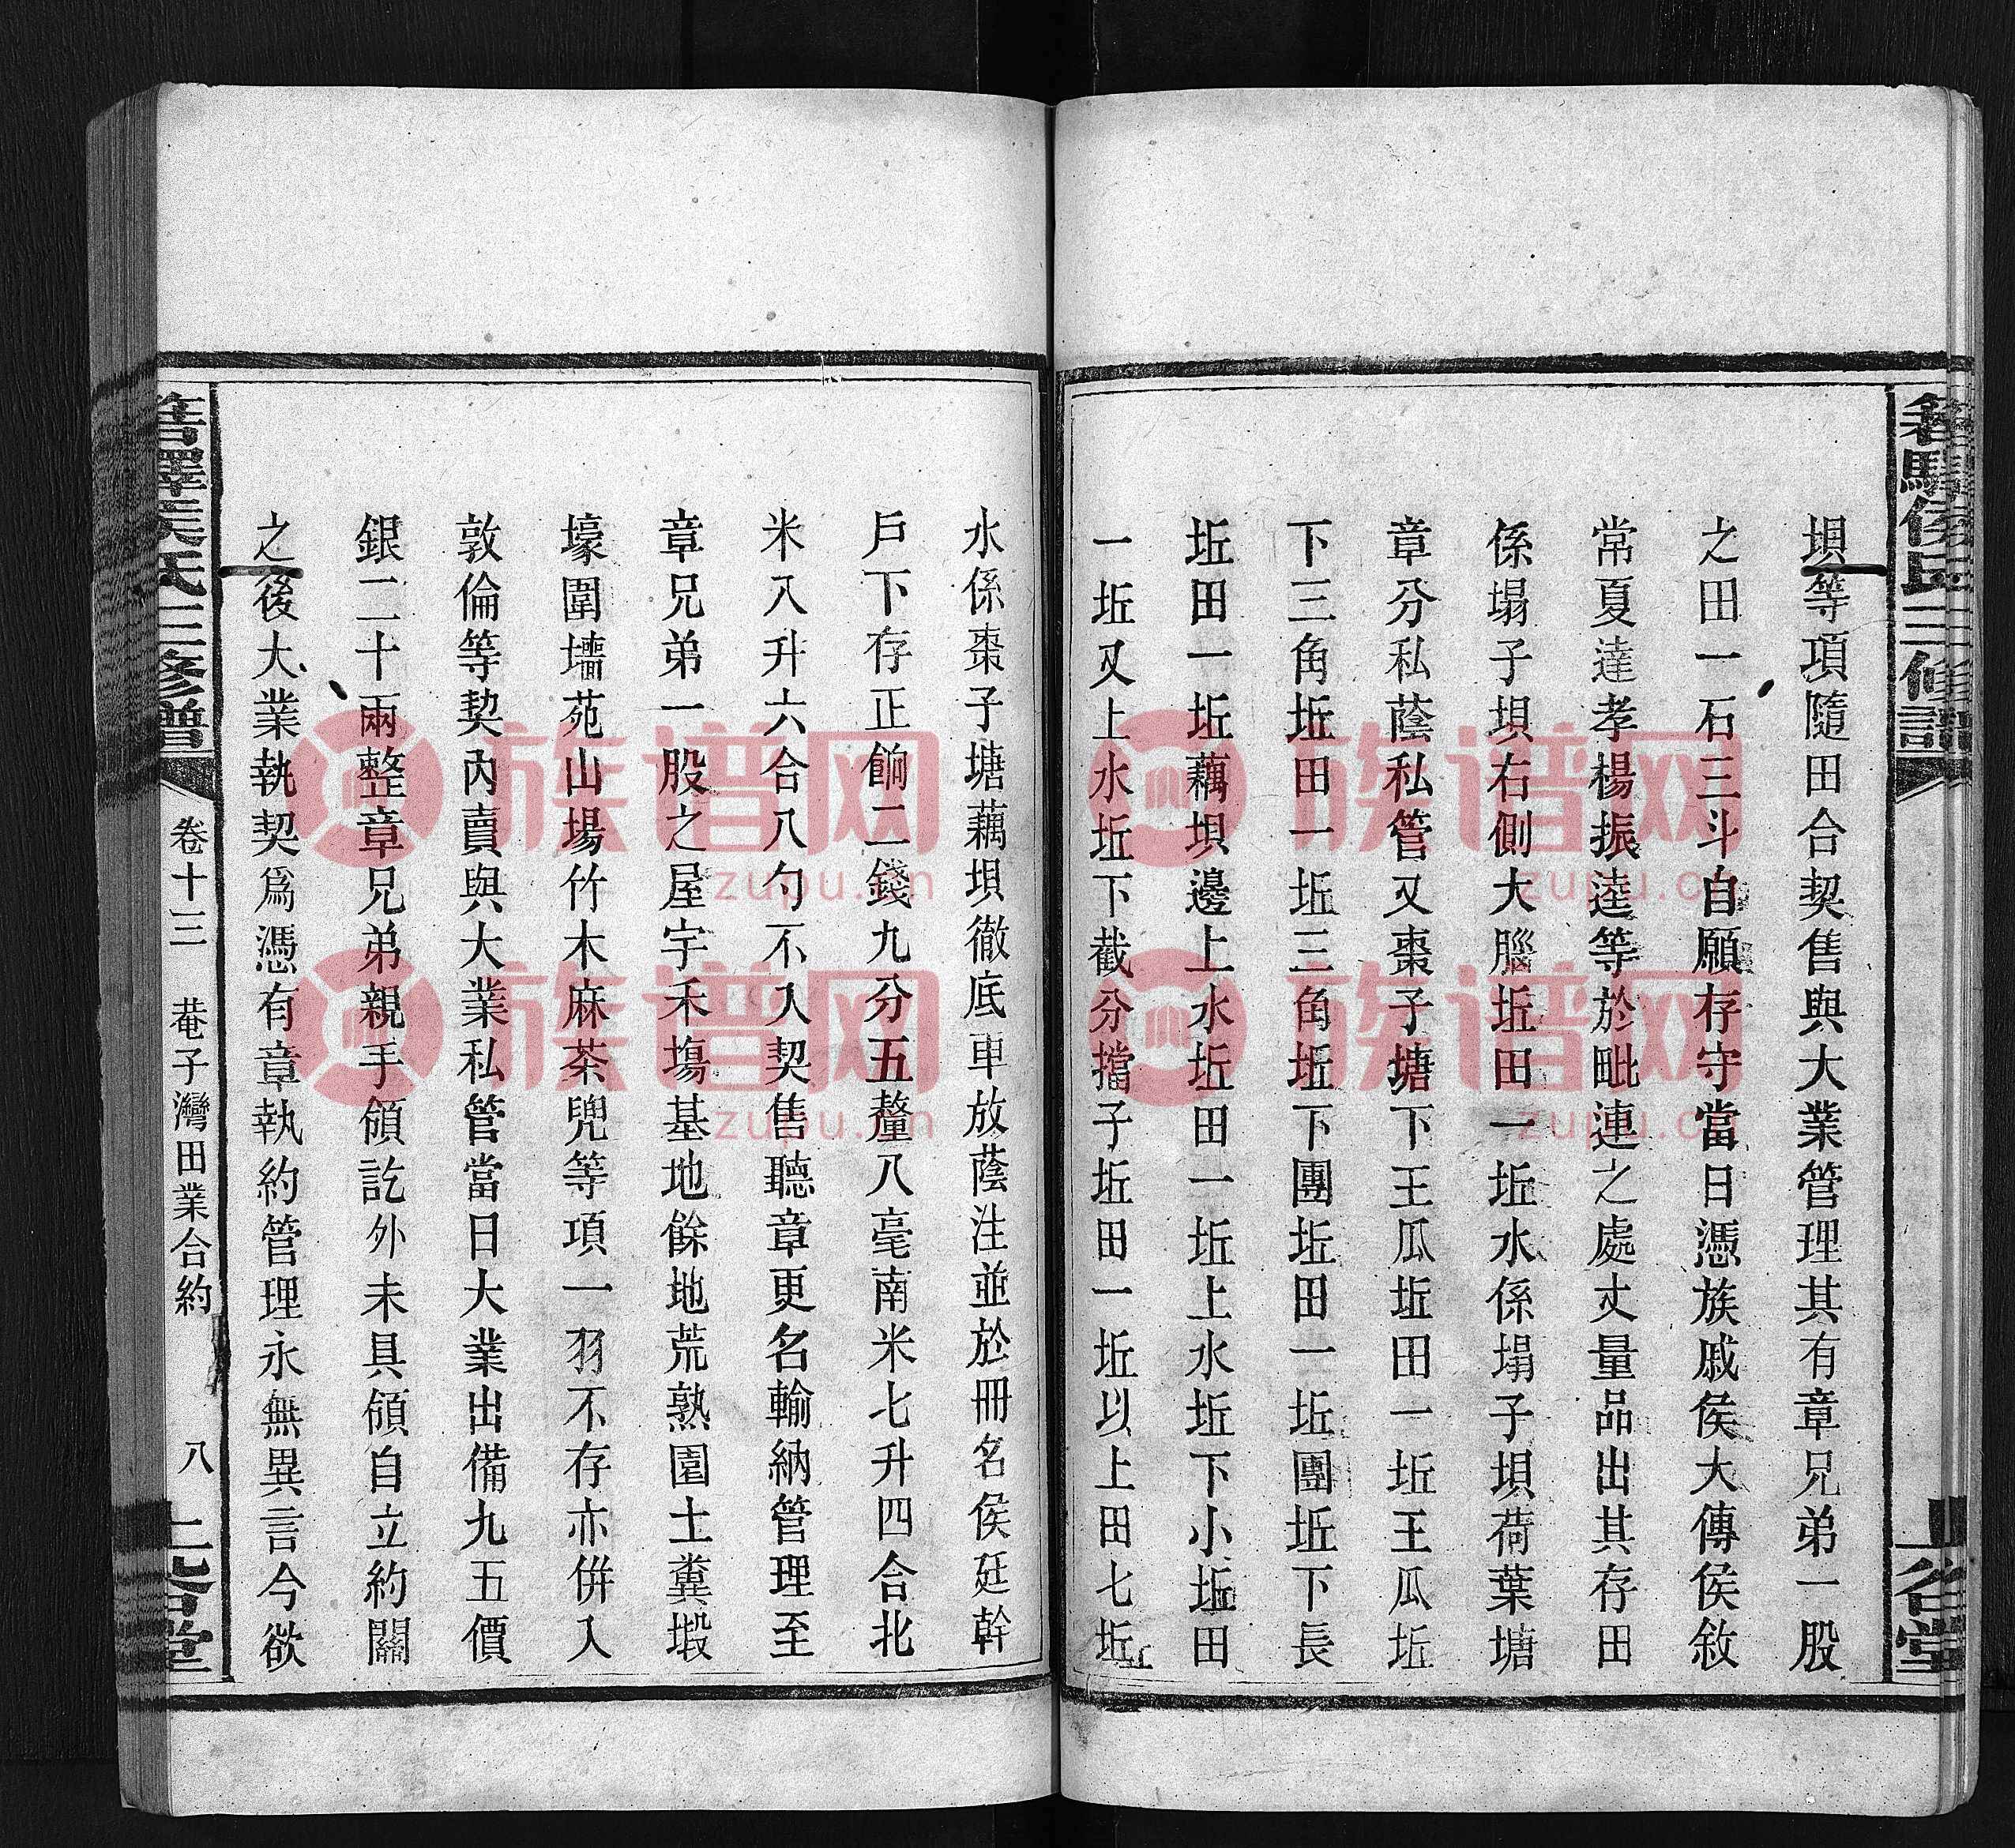 坝等項隨田合契售與大業管理其有章兄弟一股
之田一石三斗自願存守當日憑族戚侯大傳侯敘
常夏達孝楊振逵等於毗連之處丈量品出其存田
係塌子坝右側大腦坵田一坵水係塌子坝荷葉塘
章分私蔭私管又棗子塘下王瓜坵田一坵王瓜坵
下三角坵田一坵三角坵下團坵田一坵團坵下長
坵田一坵藕坝邊上水坵田一坵上水坵下小坵田
一坵又上水坵下截分擋子坵田一坵以上田七坵
水係棗子塘藕坝徹底車放蔭注並於冊名侯廷幹
戶下存正餉二錢九分五釐八毫南米七升四合北
米八升六合八勺不入契售聽章更名輸納管理至
章兄弟一股之屋宇禾塲基地餘地荒熟園土糞塅
壕圍墻苑山場竹木麻茶兜等項一羽不存亦併入
敦倫等契內賣與大業私管當日大業出備九五價
銀二十兩整章兄弟親手領訖外未具領自立約關
之後大業執契爲憑有章執約管理永無異言今欲
卷十三 菴子灣田業合約 八
族谱网
zupu.cn
族谱网
zupu.cn
族谱网
zupu.cn
族谱网
zupu.cn